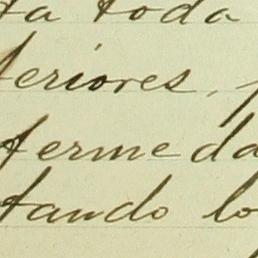 ta toda
teriores,
fermeda
tando lo